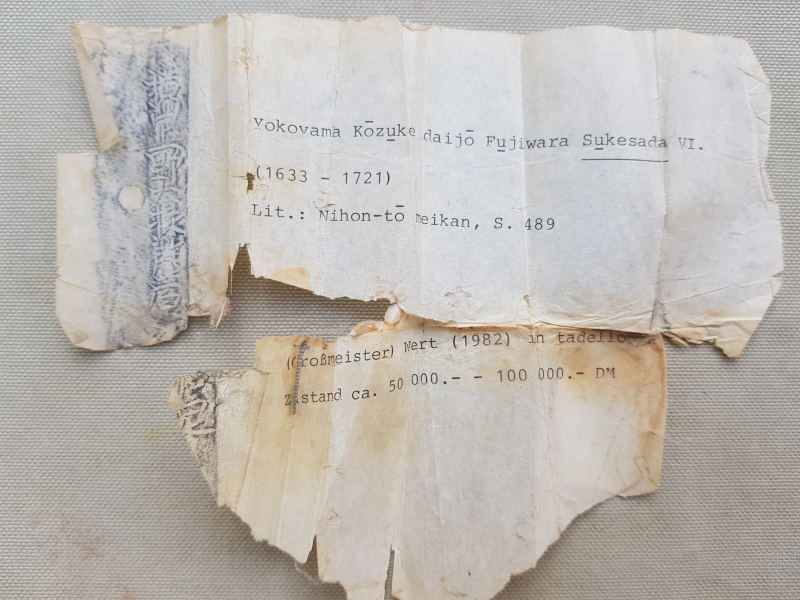 Yokoyama Kōzuke daijō Fujiwara Sukesada VI.
(1633 - 1721)
Lit.: Nihon-tō meikan, S. 489
(Großmeister) Wert (1982) in tadello
Zustand ca. 50 000.- - 100 000.- DM